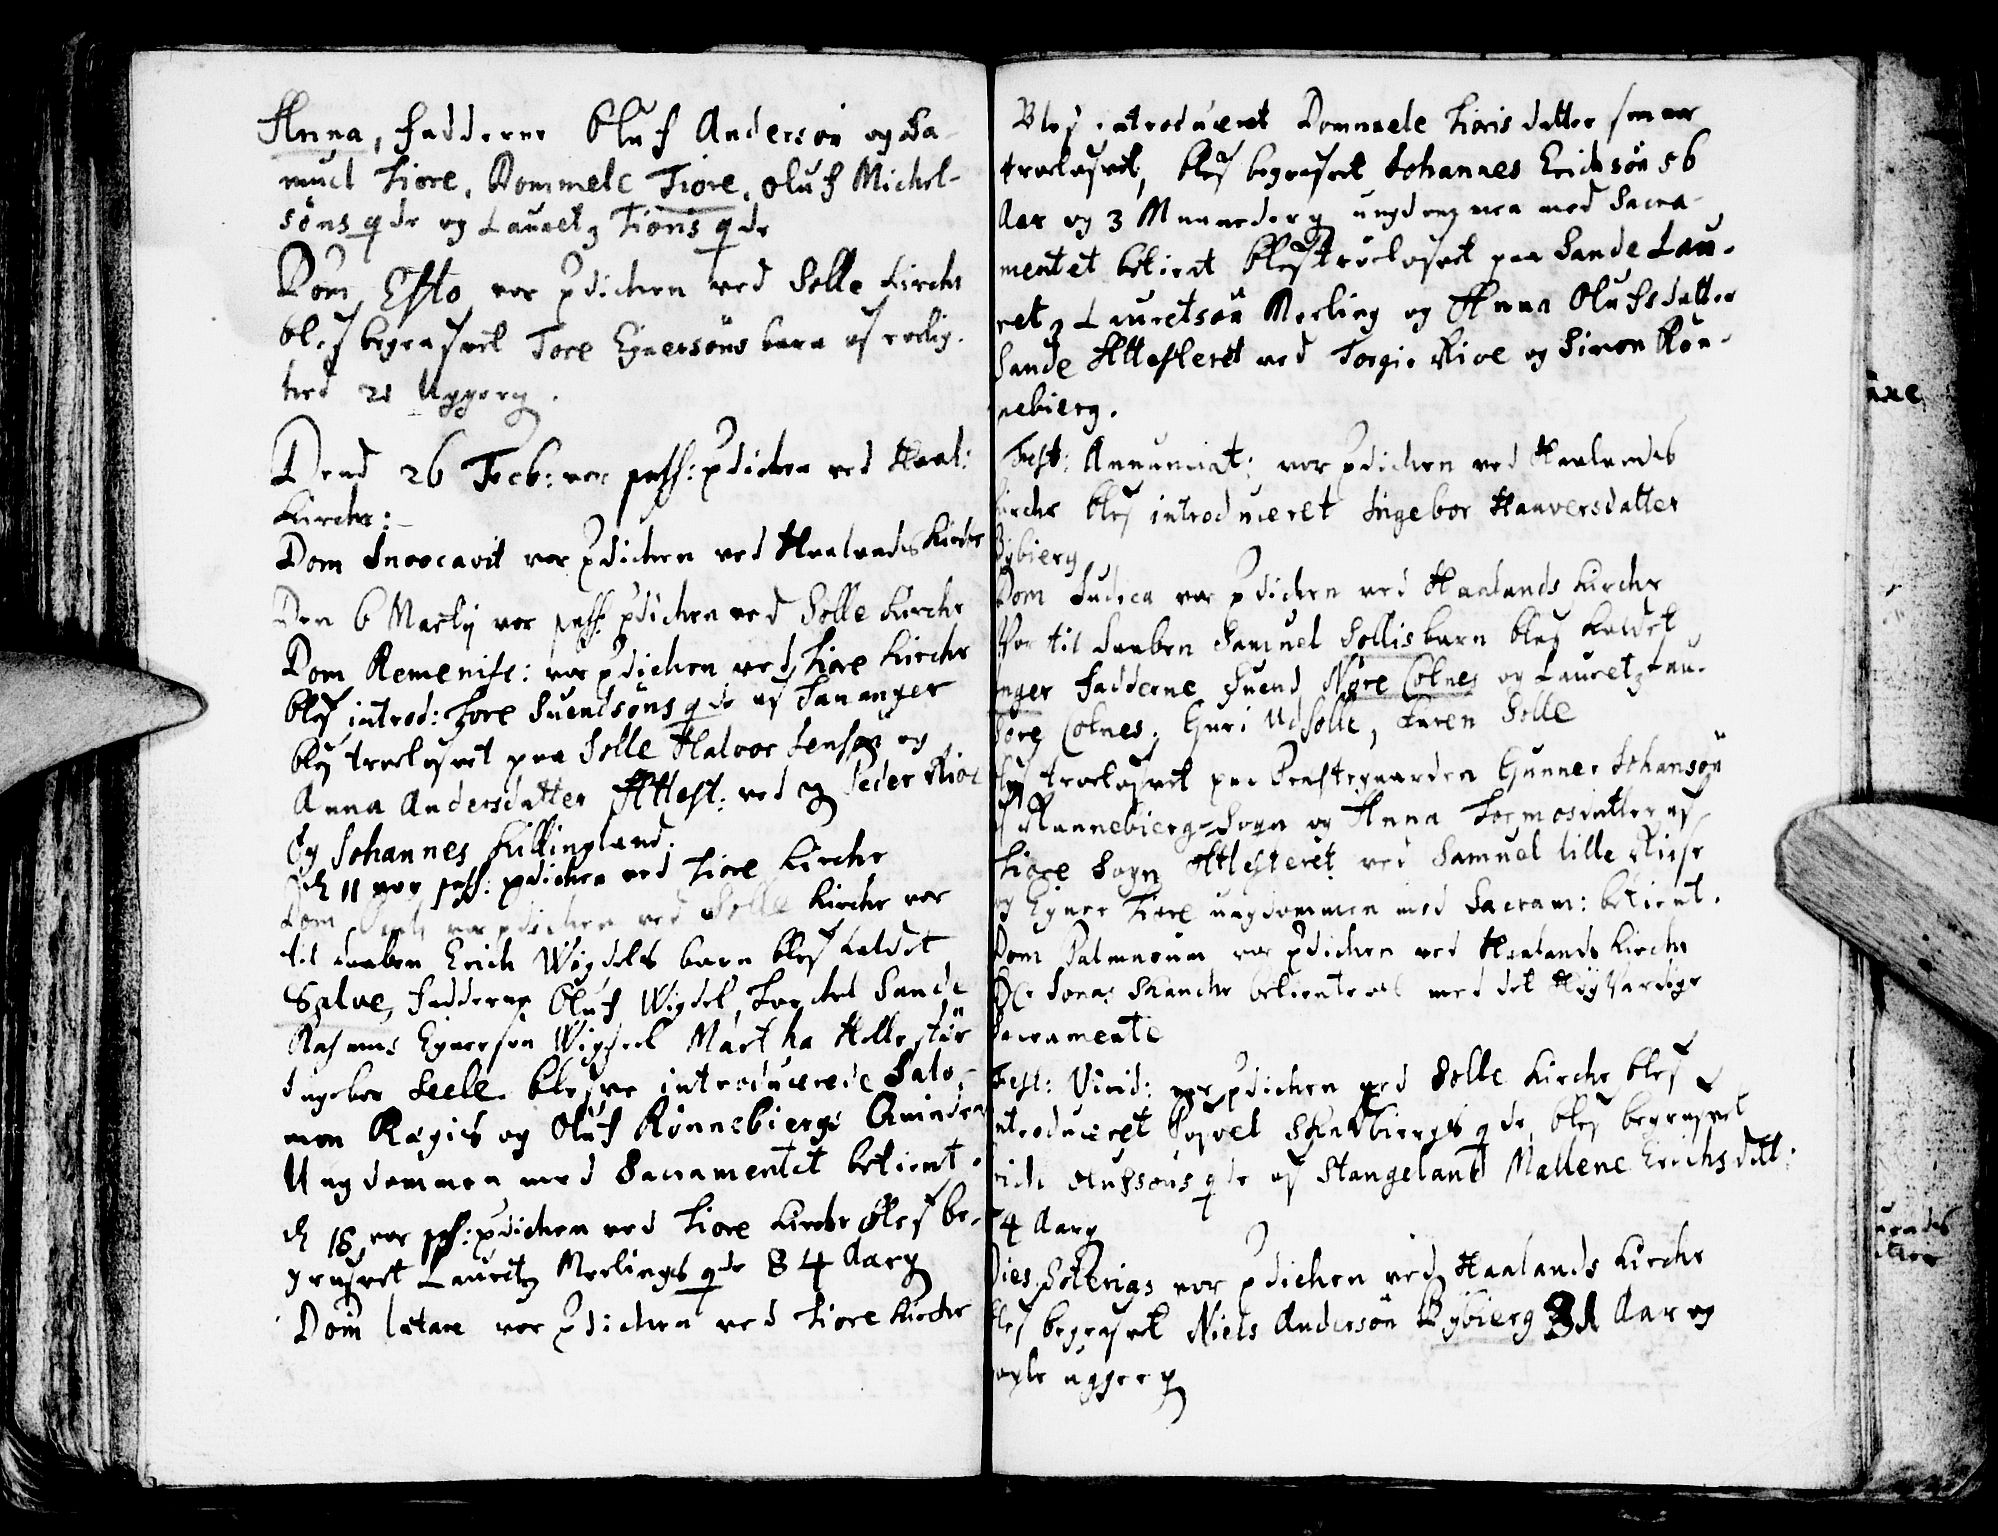 Anna, Fadderne Oluf Andersøn og Sa-
muel Tiore, Rommele Tiore, Oluf Michel-
søns qde og Lauretz Tions qde
Dom Esto var pdichen ved Solle Kirche
blef begrafvet Tore Egnersøns barn
hed 21 Uggerg.
Dend 26 Feeb: var pass: pdichen ved Haal:
Kirche:
Dom Invocavit var pdichen ved Haalands Kirche
Den 6 Martij var pass: pdichen ved Solle Kirche
Dom Remenise: var pdichen ved Tiore Kirche
blef introd: Tore Suendsøns qde af Tananger
blef trolofvet paa Solle Halvor Jensøn og
Anna Andersdatter Attest: ved Peder
Og Johannes Killingland.
d 11 var pass: pdichen ved Tiore Kirche
Dom var pdichen ved Solle Kirche var
til daaben Erich Wigdels barn blef kaldet
Salve, Fadderne Oluf Wigdel, Torchel Sande
Rasmus Egnersøn Wigdel Martha Hellestør
Ingebor Seele blefve introducerede Salo-
mon Rægies og Oluf Rønnebiergs Quinder
Ungdommen med Sacramentet betient.
d 18 var pass: pdichen ved Tiore Kirche blef be-
grafvet Lauretz Meelings qde 84 Aarg
Dom lætare var pdichen ved Tiore Kirche
Blef introduceret Rommele Tioris datter som var
trolofvet, blef begrafvet Johannes Erichsøn 56
Aar og 3 Maaneder g ungdommen med Sacra-
mentet betient blef trolofvet paa Sande Lau-
retz Lauretsøn Meeling og Anna Olufsdatter
Sande Attesteret ved Torgier and Simon Røn-
nebierg.
Fest: Annunciat: var pdichen ved Haalands
Kirche blef introduceret Ingebor Haaversdatter
Bybierg
Dom Judica var pdichen ved Haalands Kirche
Var til daaben Samuel Sollis barn blef kaldet
Inger Fadderne Suend Nøre Colnes og Lauretz
Tore Colnes, Guri Udsolle, Karen Solle
blef trolofvet paa Prestegaarden Gunner Johansøn
af Rannebierg-Sogn og Anna Tormosdatter af
Tiore Sogn Attesteret ved Samuel lille
og Egner Tiore ungdommen med Sacram: betient.
Dom Palmarum var pdichen ved Haalands Kirche
Hr Jonas Skanche betiente med det Høyværdige
Sacramente
Fest: Virid: var pdichen ved Solle Kirche blef
introduceret Posvel Skadbiergs qde, blef begrafvet
Erich Olufsøns qde af Stangeland Mallene Erichsdatt:
74 Aarg
Dies Soterigs var pdichen ved Haalands Kirche
blef begrafvet Niels Andersøn Bybierg 31 Aar og
nogle uggerg